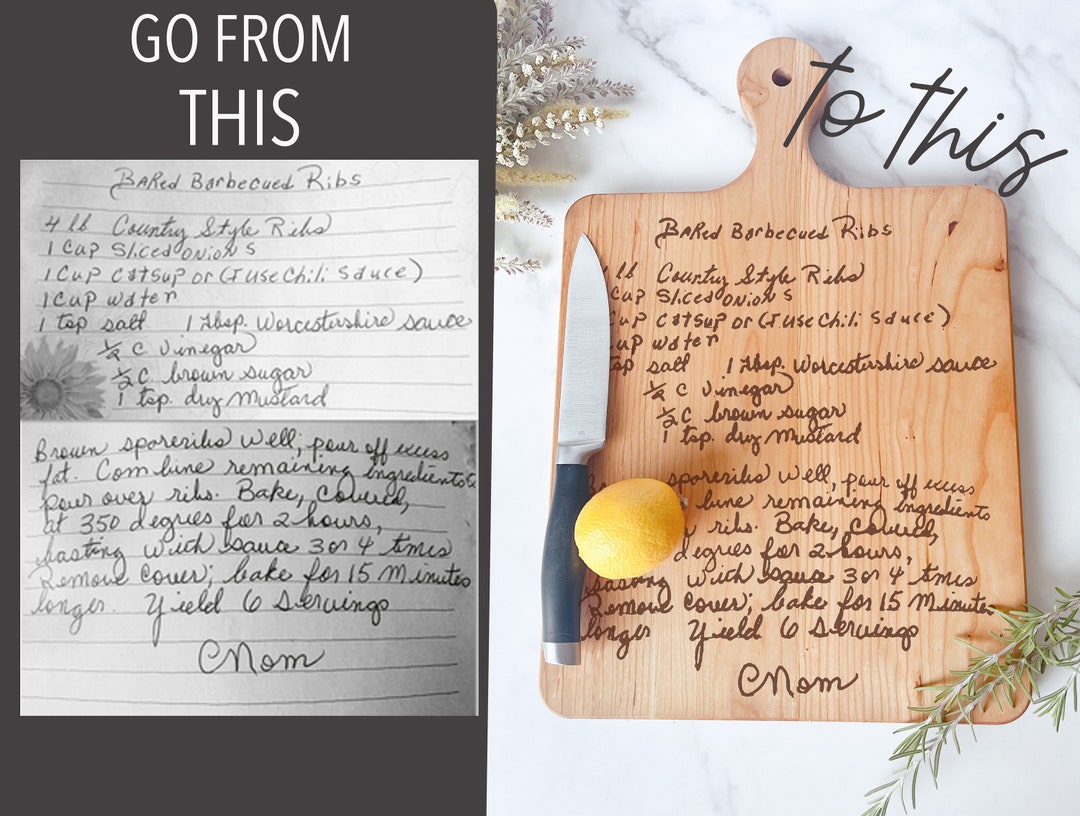 GO FROM
THIS
Baked Barbecued Ribs
4 lb Country Style Ribs
1 Cup Sliced onions
1 Cup Catsup or (I use Chili Sauce)
1 Cup water
1 tsp salt 1 Tbsp. Worcestershire sauce
½ C Vinegar
½ C brown sugar
1 tsp. dry Mustard
Brown spareribs well; pour off excess
fat. Combine remaining ingredients &
pour over ribs. Bake, Covered,
at 350 degries for 2 hours,
basting with sauce 3 or 4 times
Remove cover; bake for 15 Minutes
longer. Yield 6 Servings
Mom
to this
Baked Barbecued Ribs
lb Country Style Ribs
Cup Sliced onions
up Catsup or (I use Chili Sauce)
up water
tsp salt 1 Tbsp. Worcestershire sauce
½ C Vinegar
½ C brown sugar
1 tsp. dry Mustard
spareribs well, pour off excess
bine remaining ingredients
ribs. Bake, Covered,
degries for 2 hours,
basting with sauce 3 or 4 times
Remove cover; bake for 15 Minutes
longer Yield 6 Servings
Mom